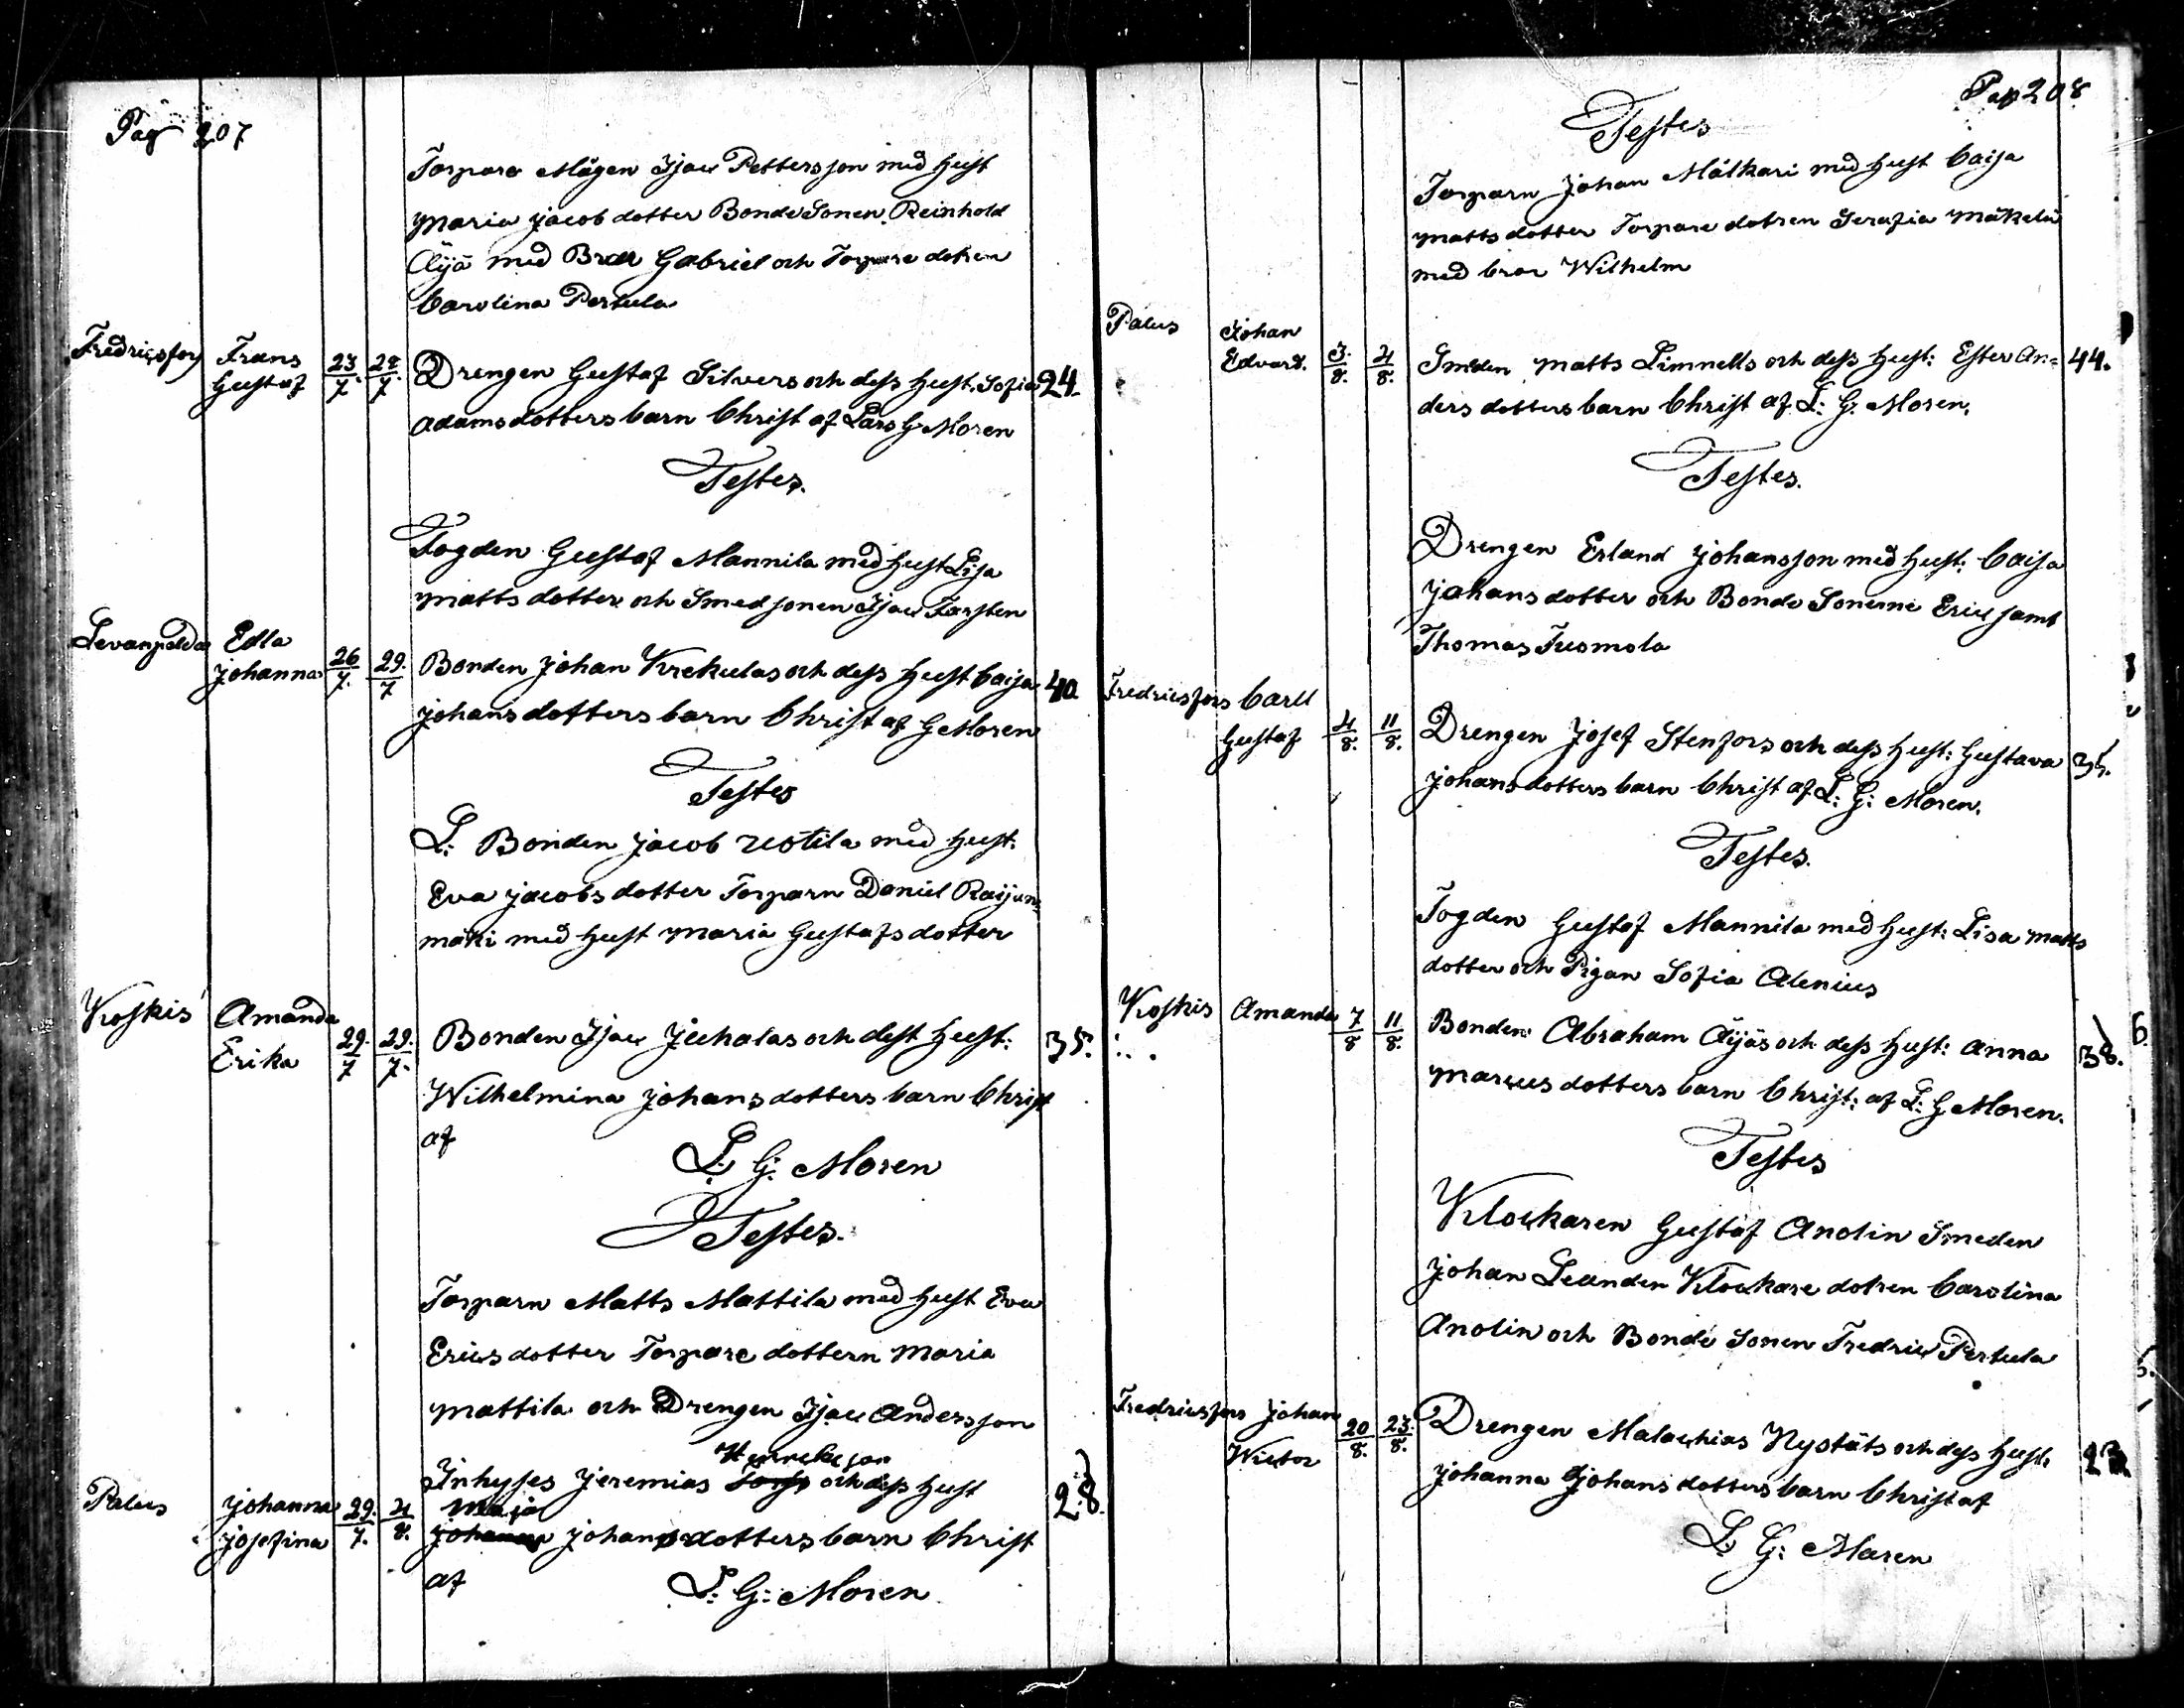 Pag 207
Torpare Mågen Isac Pettersson med Hust
Maria Jacobdotter Bonde Sonen Reinhold
Äyä med Bror Gabriel och Torpare dotren
Carolina Pertula
Fredricsfors Frans Gustaf 23/7. 28/7. Drengen Gustaf Silvers och dess Hust. Sofia 24.
Adamsdotters barn Christ af Lars G Moren
Testes.
Fogden Gustaf Mannila med Hust Lisa
Mattsdotter och Smedsonen Isac Forsten
Levanpelda Edla Johanna 26/7. 29./7 Bonden Johan Krekulas och dess Hust Caisa 40
Johansdotters barn Christ af G Moren
Testes
L: Bonden Jacob Uotila med Hust:
Eva Jacobsdotter Torparn Daniel Raijun=
mäki med Hust Maria Gustafsdotter
Koskis Amanda Erika 29./7 29./7. Bonden Isac Juhalas och dest Hust: 35.
Wilhelmina Johansdotters barn Christ
af
L. G: Moren
Testes.
Torparn Matts Mattila med Hust Eva
Ericsdotter Torpare dottern Maria
Mattila och Drengen Isac Andersson
Henrikson
Inhyses Jeremias och dess Hust 28.
Maja
Palus Johanna Josefina 29./7. 4/8. Johanna Johansdotters barn Christ
af L: G: Moren
Pag 208
Testes
Torparn Johan Mälkäri med Hust Caisa
Mattsdotter Torpare dotren Serafia Mäkelä
med bror Wilhelm
Palus Johan Edvard. 3./8. 4/8. Smeden Matts Limnells och dess Hust: Ester An= 44.
dersdotters barn Christ af L: G: Moren.
Testes.
Drengen Erland Johansson med Hust: Caisa
Johansdotter och Bonde Sonerne Eric samt
Thomas Tuomola
Fredricsfors Carll Gustaf 4/8. 11/8. Drengen Josef Stenfors och dess Hust: Gustava 35.
Johansdotters barn Christ af L: G: Moren.
Testes.
Fogden Gustaf Mannila med Hust: Lisa Matts
dotter och Pigan Sofia Alenius
Koskis Amanda 7/8 11/8. Bonden Abraham Äyäs och dess Hust: Anna 38.
Marcusdotters barn Christ: af L: G Moren.
Testes
Klockaren Gustaf Anolin Smeden
Johan Leanden Klockare dotren Carolina
Anolin och Bonde Sonen Fredric Pertula
Fredricsfors Johan Wictor 20/8. 23./8. Drengen Malachias Nystäts och dess Hust.
Johanna Johansdotters barn Christ af
L: G: Moren